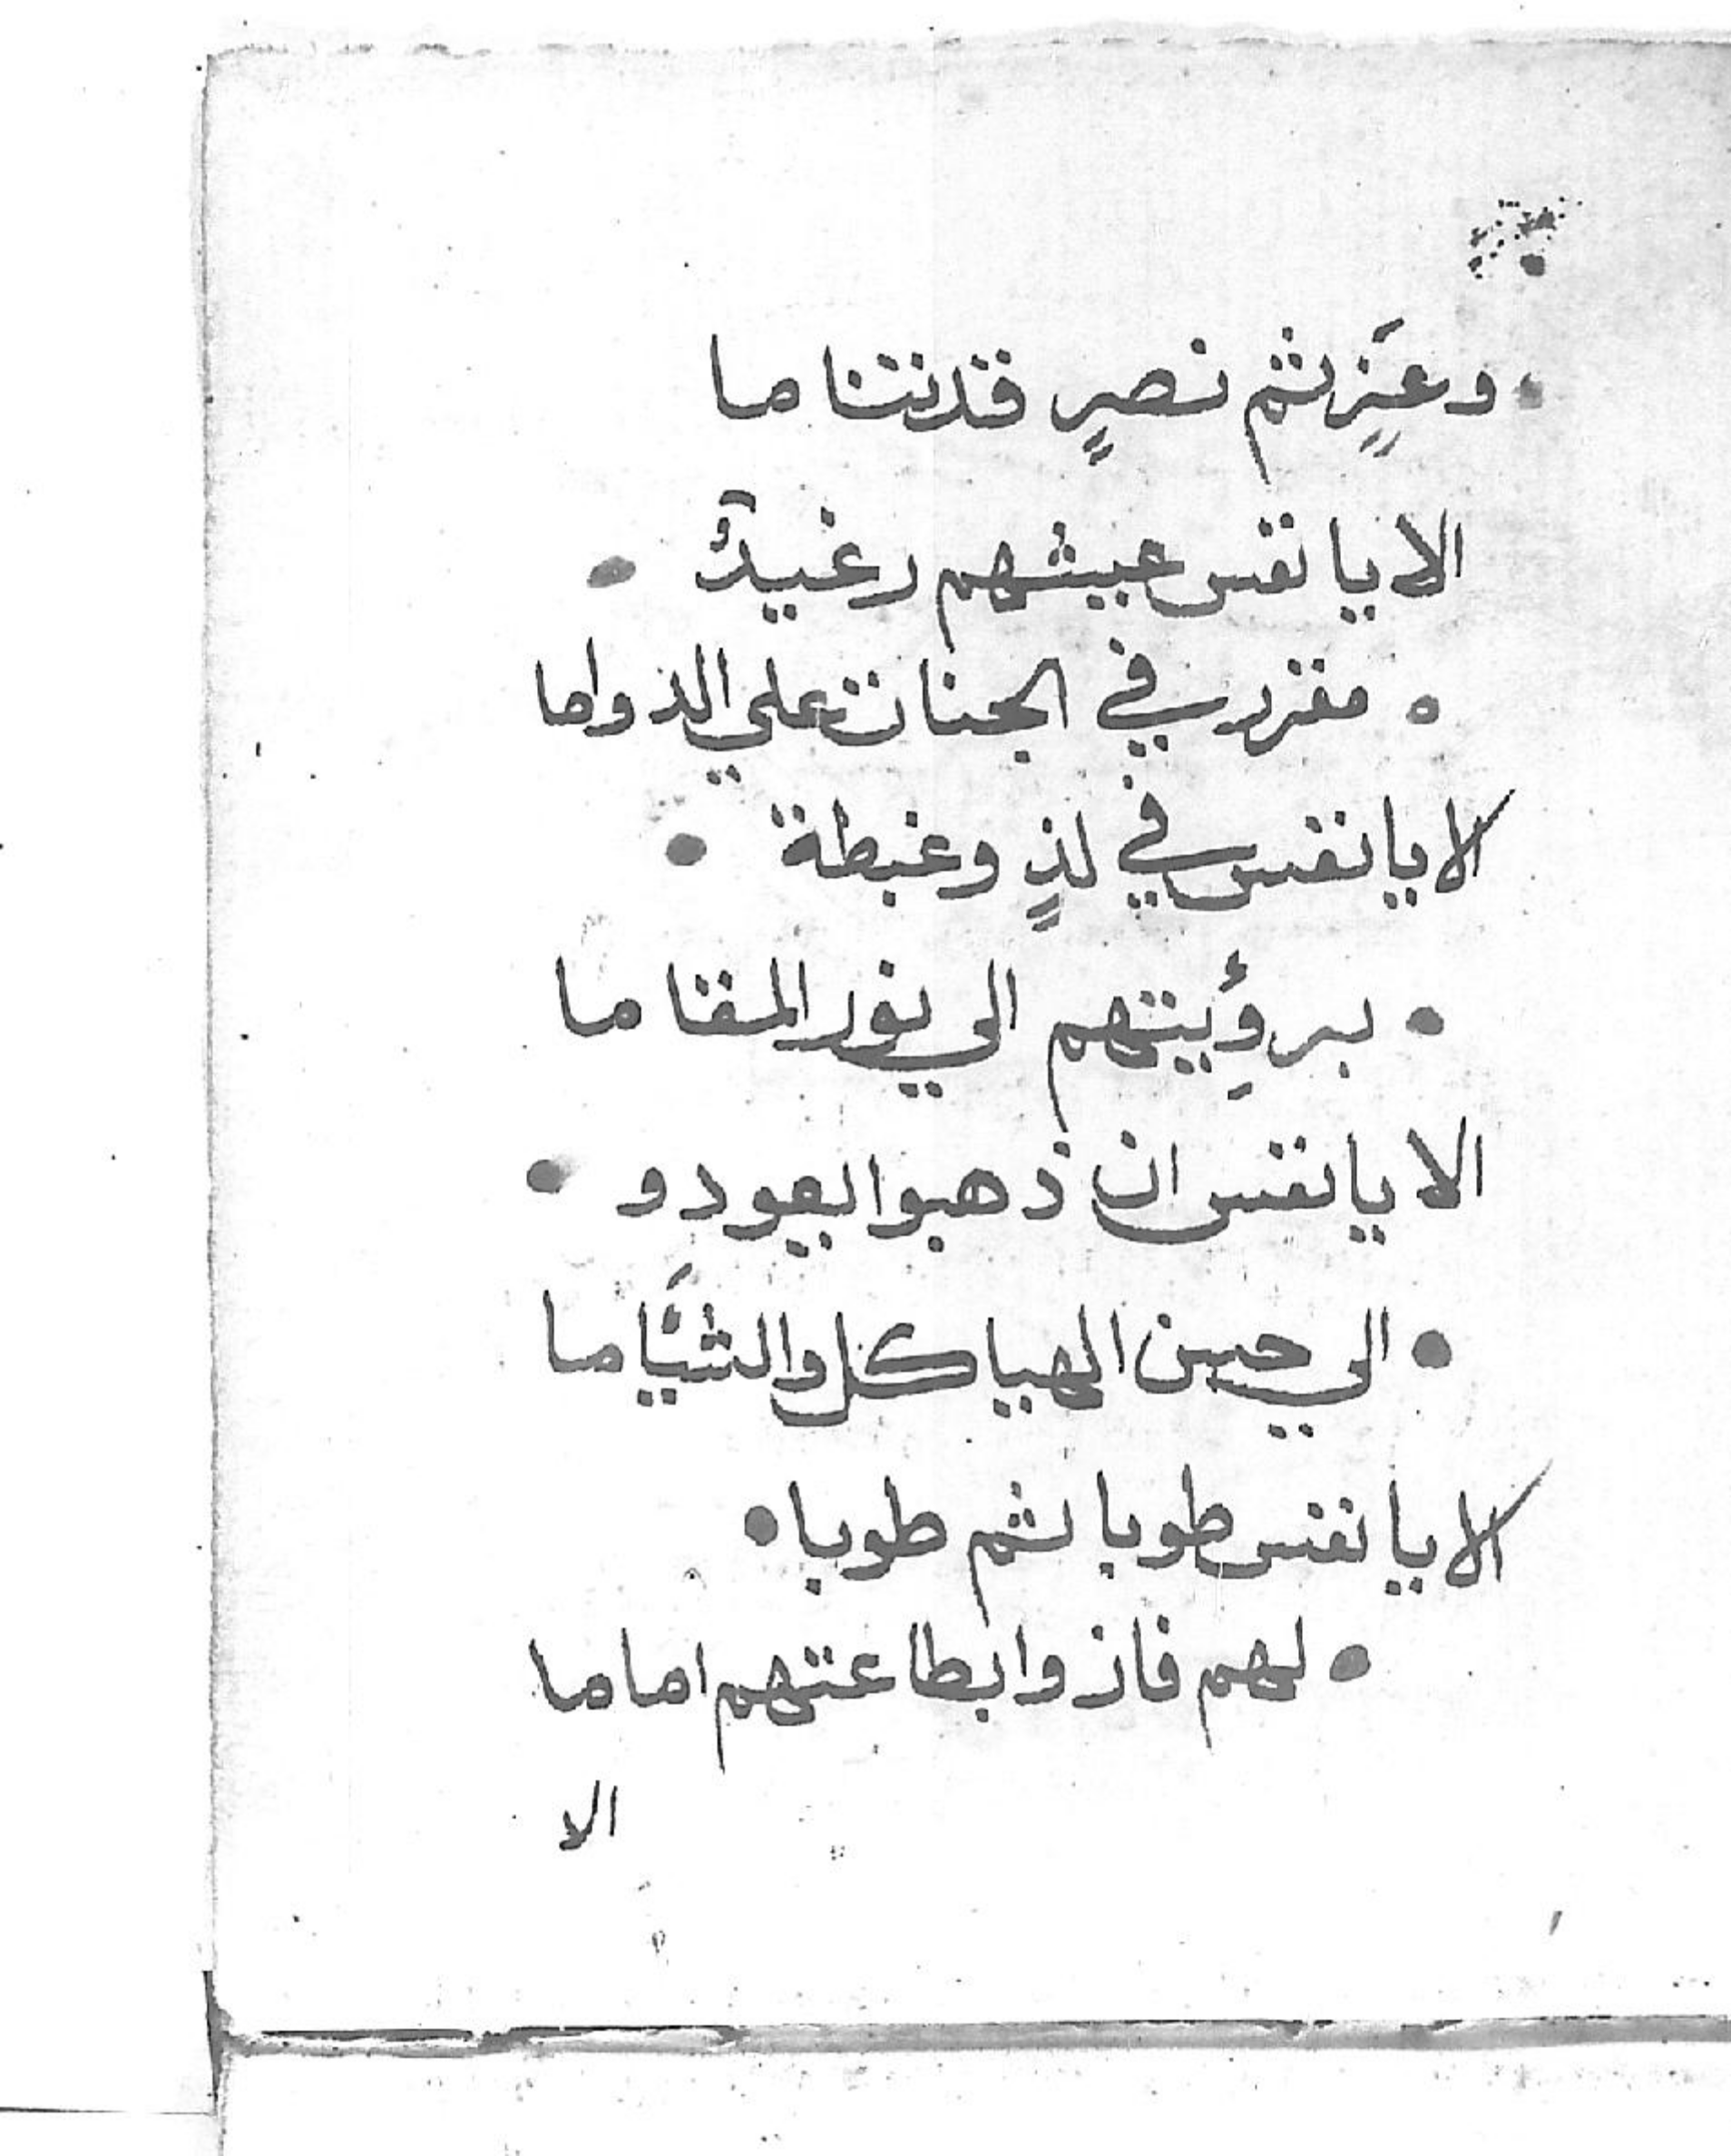 وعَزٍ ثم نصرٍ قد نتناما
الا يا نفس عيشهم رغيدٌ
مقرر في الجنات علي الدواما
الا يا نفس في لذٍ وغبطة
برؤِيتهم الي نور المقاما
الا يا نفس ان ذهبوا يعودو
الي حسن الهياكل والشيَّاما
الا يا نفس طوبا ثم طوبا
لهم فازوا بطاعتهم اماما
الا